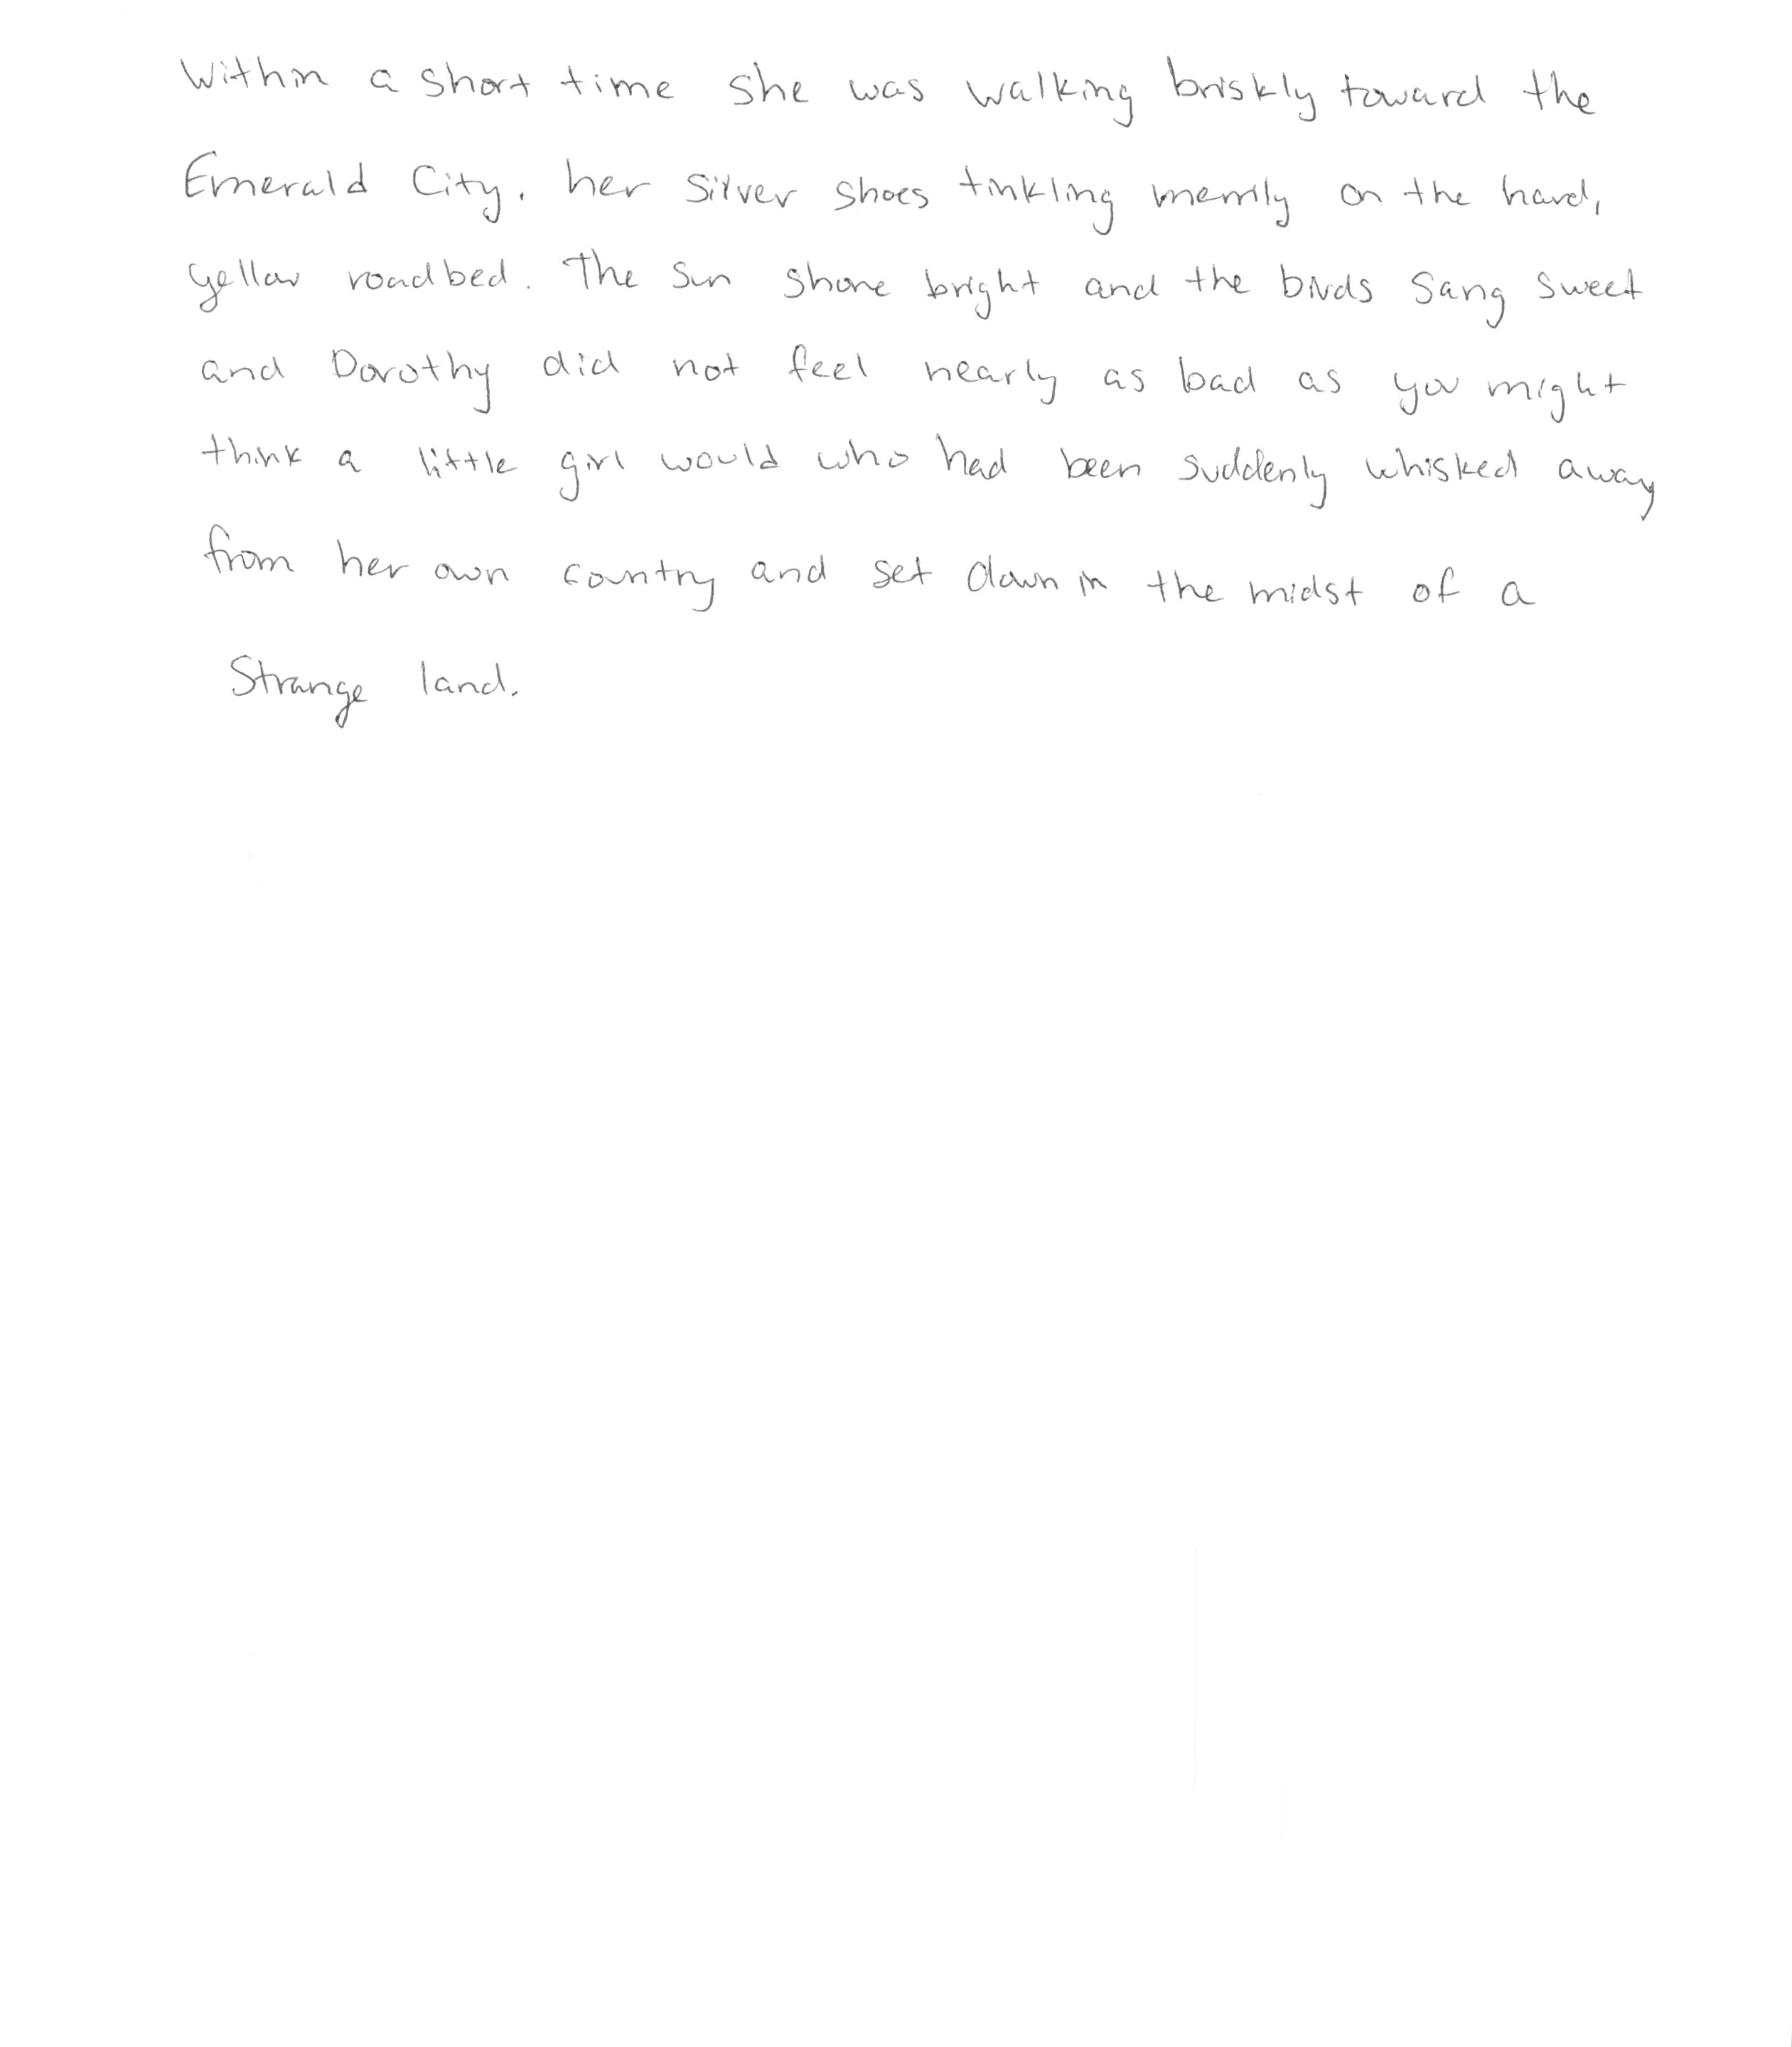 Within a short time she was walking briskly toward the
Emerald City, her Silver Shoes tinkling merrily on the hard,
yellow roadbed. The Sun shone bright and the birds Sang Sweet
and Dorothy did not feel nearly as bad as you might
think a little girl would who had been suddenly whisked away
from her own country and set down in the midst of a
Strange land.